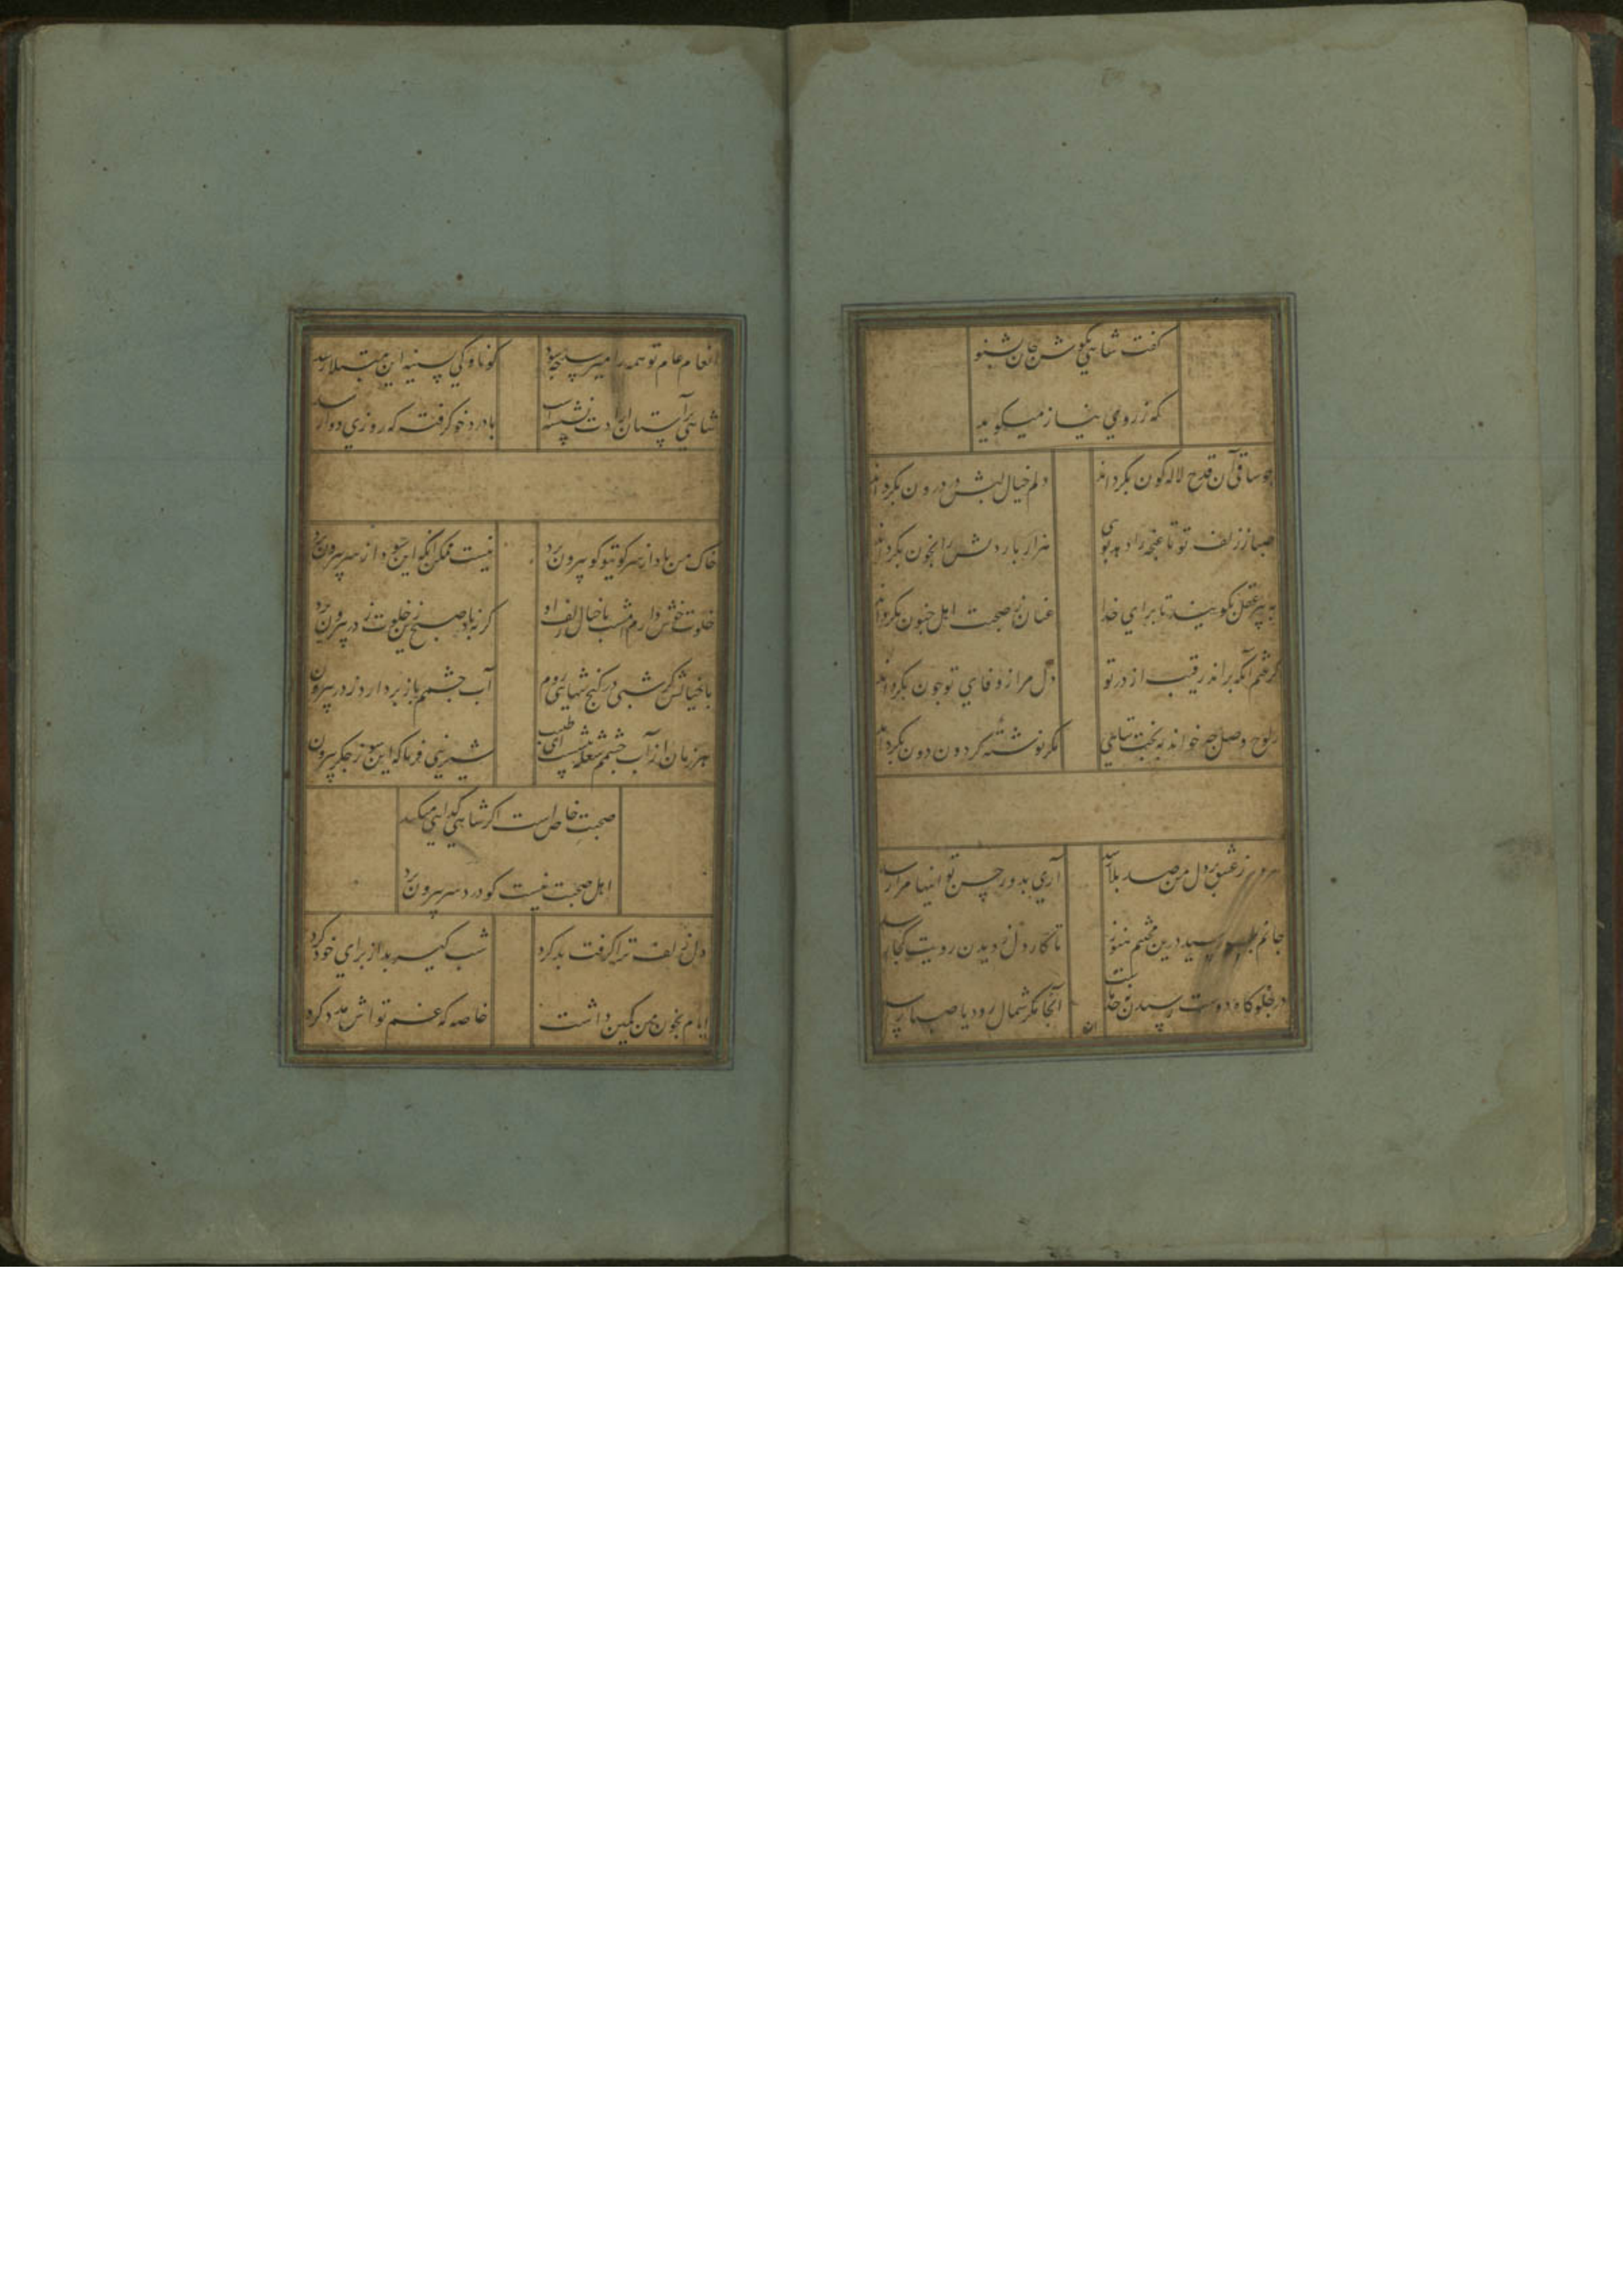 گفت شاهی بگوش جان بشنو
که ز روی نیاز میگوید
چو ساقی آن قدح لاله کون بگرداند دلم خیال لبش در درون بگرداند
صبا ز زلف تو تا غنچه را دهد بویی هزار بار دلش را بخون بگرداند
به پیر عقل بگویید تا برای خدا عنان ز صحبت اهل جنون بگرداند
گرفتم آنکه براند رقیب از در تو دل مرا ز وفای تو چون بگرداند
ز لوح وصل چه خواند به بخت شاهی مگر نوشته گردون دون بگرداند
هر دم ز عشق بر دل من صد بلا رسد آری بدور حسن تو اینها مرا رسد
جانم بلب رسید درین غم هنوز تا کار دل ز دیدن رویت کجا رسد
در خلوگاه دوست رسیدن حد آنجا مگر شمال رود یا صبا رسد
انعام عام تو همه را میرسد چه سود کو ناوکی بسینه این مبتلا رسد
شاهی بر آستان ارادت نشسته است با درد خو گرفته که روزی دوا رسد
خاک من باد از سر کو تو کو بیرون برد نیست ممکن آنکه این سودا ز سر بیرون برد
خلوت خوش دارم امشب با خیال زلف او گر نه باد صبح زین خلوت ز در بیرون برد
با خیالش گر شبی در کنج تنهایی روم آب چشمم باز بردارد ز در بیرون برد
هر زمان از آب چشمم شعله بیشست ای طبیب شربتی فرما که این سوز جگر بیرون برد
صحبت خاص است اگر شاهی گدایی میکند
اهل صحبت نیست کو درد سر بیرون برد
دل زلف ترا گرفت بد کرد شب گیر بد از برای خود کرد
ایام بخون من کمین داشت خاصه که غم تو اش مدد کرد